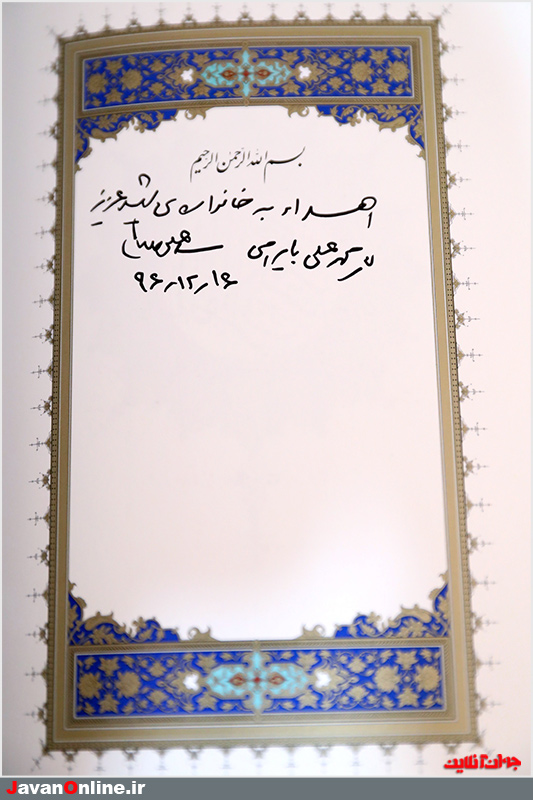 بسم الله الرحمن الرحیم
اهداء به خانواده‌ی شهید عزیز
علی بایرامی
۹۶ر۱۲ر۱۶
جوان آنلاین
JavanOnline.ir